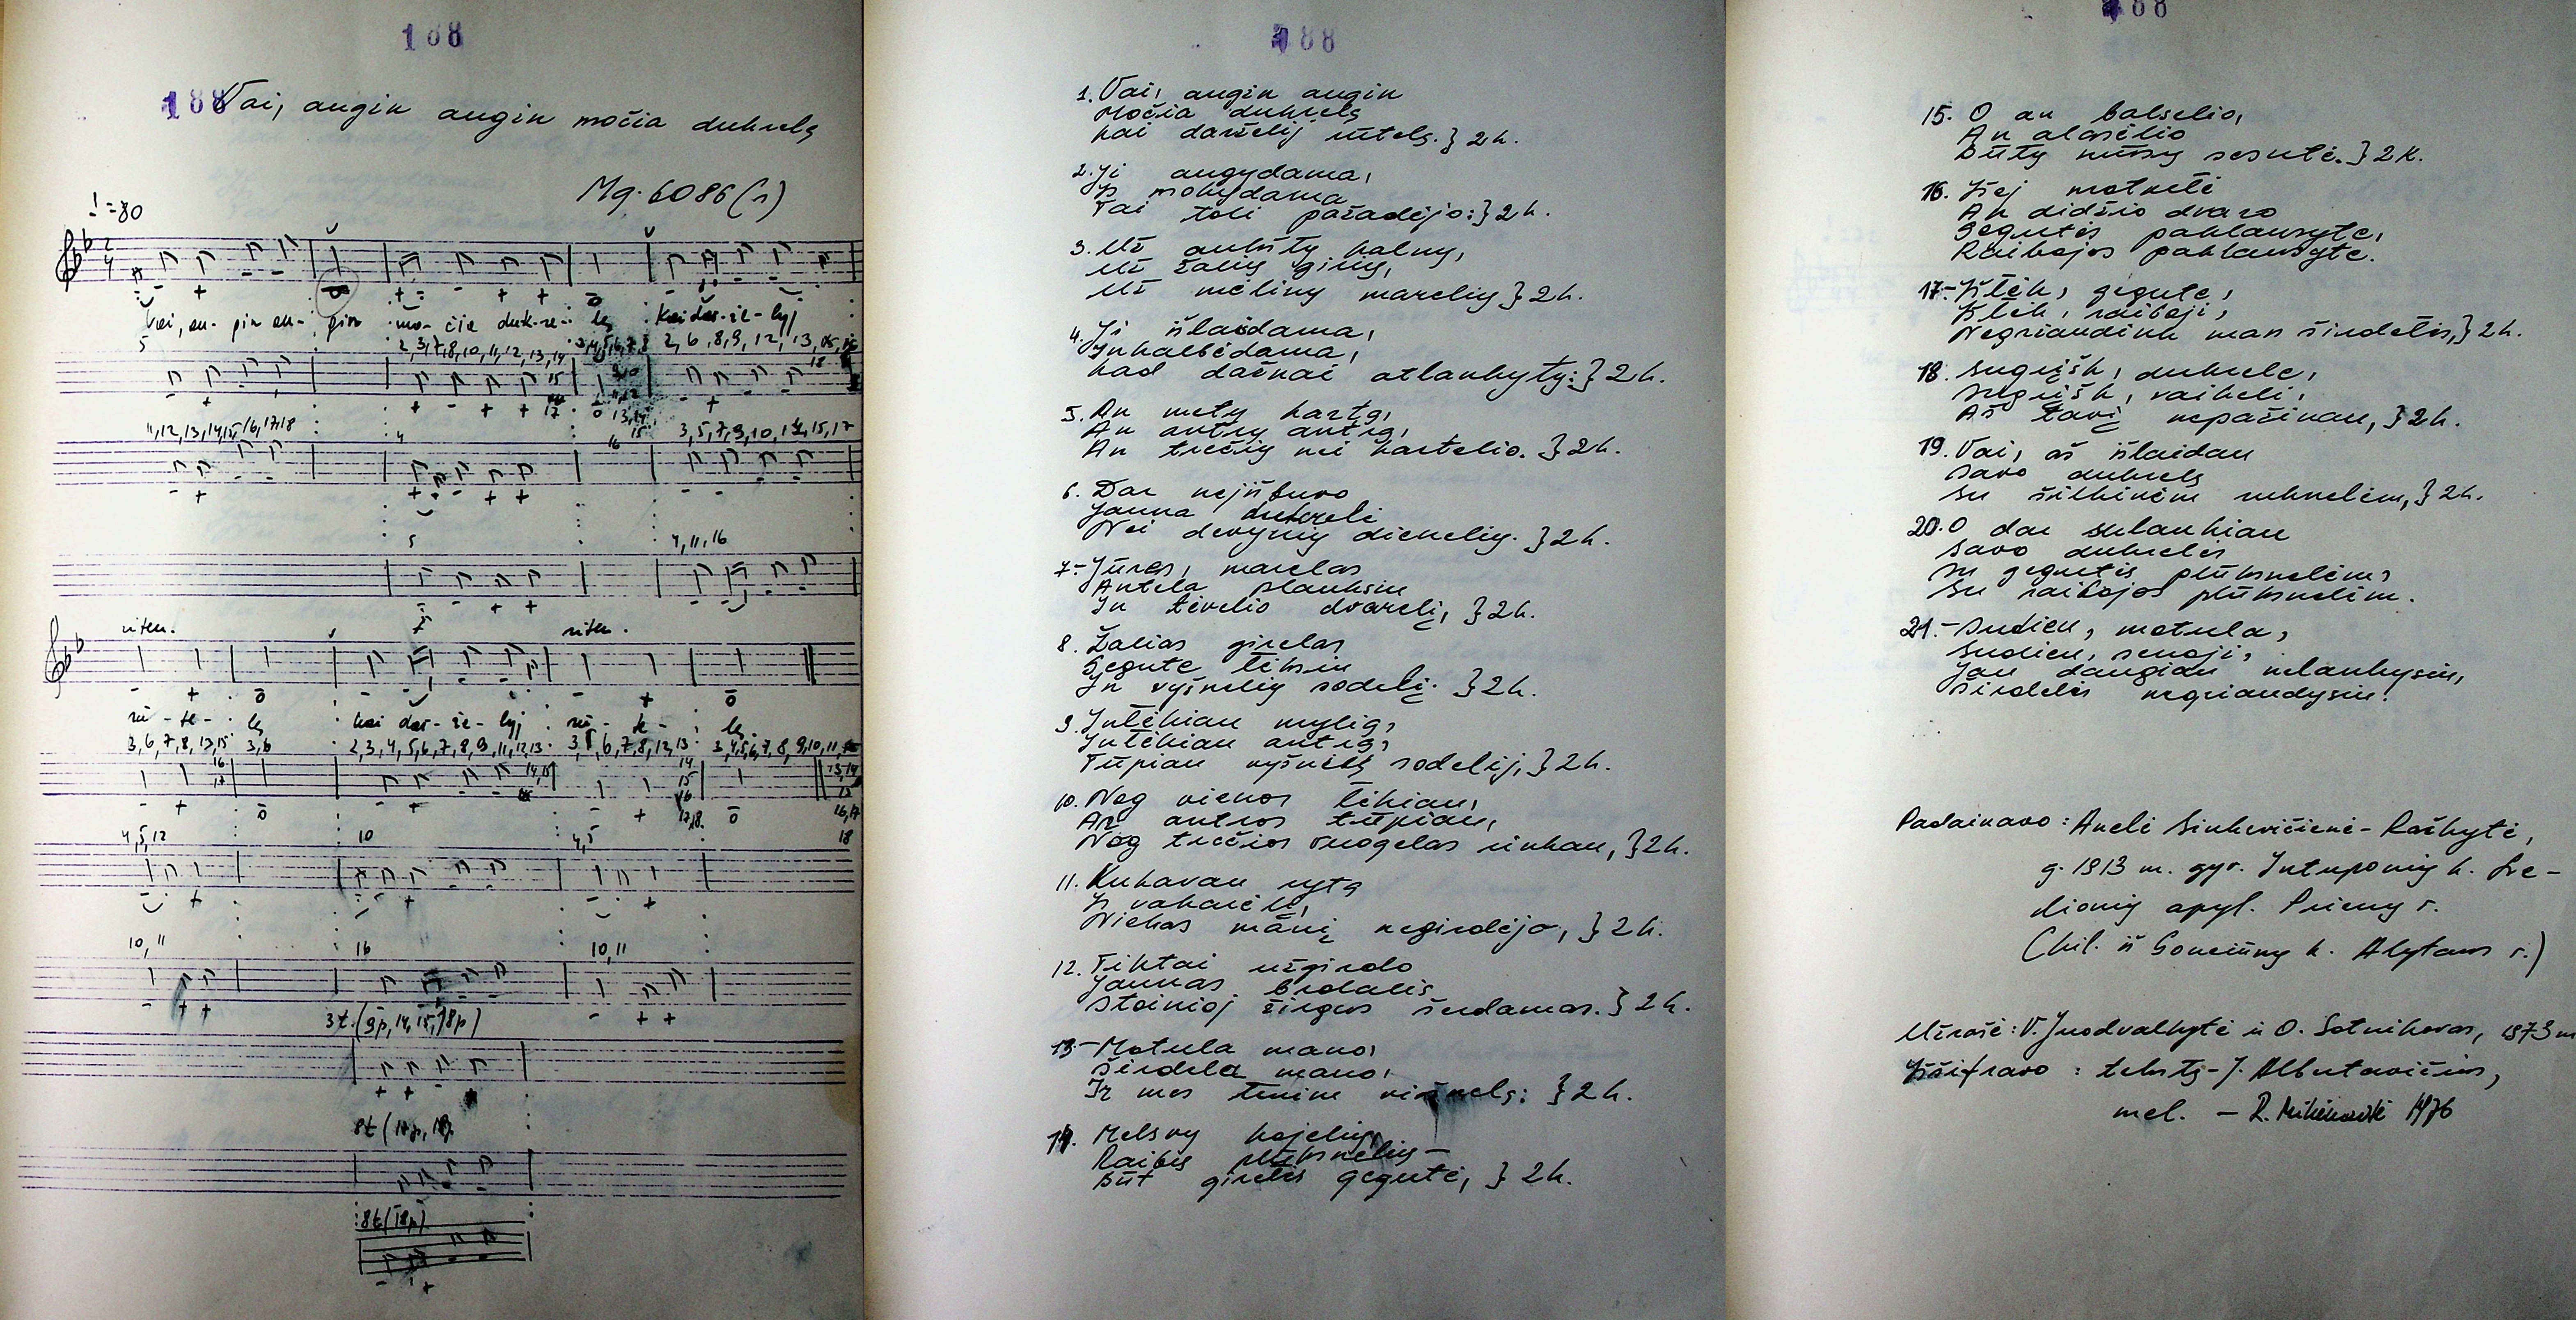 188
188 Vai, augin augin močia dukrelę
Mg. 6086(1)
♩=80
Vai, au- gin au- gin mo- čia duk-re- lę kai dar-že-lyj
5 2,3,7,8,10,11,12,13,14 2,6,8,9,12,13,
11,12,13,14,15,16,17,18 4 16 3,5,7,9,10,14,15,17
5 4,11,16
riten. riten.
rū - te - lę kai dar-že-lyj rū - te - lę
3,6,7,8,13,15 3,6 2,3,4,5,6,7,8,9,11,12,13 3,5,6,7,8,12,13 3,4,5,6,7,8,9,10,11
4,5,12 10 4,5 18
10,11 16 10,11
3t.(9p,14,15,18p)
8t(18p)
188
1. Vai, augin augin
Močia dukrelę
Kai darželij rūtelę. } 2k.
2. Ji augydama,
Ją mokydama
Tai toli pažadėjo: } 2k.
3. Už aukštų kalnų,
Už žalių girių,
Už mėlinų marelių } 2k.
4. Ji išlaisdama,
Inkalbėdama,
Kad dažnai atlankytų: } 2k.
5. An metų kartą,
An antrų antrą,
An trečių nei kartelio. } 2k.
6. Dar nejišbuvo
Jauna dukrelė
Nei devynių dienelių. } 2k.
7. - Jūres, marelas
Antela plauksiu
In tėvelio dvarelį, } 2k.
8. Žalias girelas
Gegute lėksiu
In vyšnelių sodelį. } 2k.
9. Inlėkiau mylią,
Inlėkiau antrą,
Tūpiau vyšnelių sodelij, } 2k.
10. Nog vienos lėkiau,
An antros tūpiau,
Nog trečios uogelas rinkau, } 2k.
11. Kukavau rytą
Ir vakarėlį,
Niekas mani negirdėjo, } 2k.
12. Tiktai užgirdo
Jaunas brolalis
Stainioj žirgus šerdamas. } 2k.
13. - Motula mano,
Širdela mano,
Ir mes turim viešnelę: } 2k.
14. Melsvų kojelių,
Raibų plūksnelių -
Būt girelės gegutė, } 2k.
188
15. O an balselio,
An alasėlio
Būtų mūsų sesutė. } 2k.
16. Išėj motnelė
An didžio dvaro
Gegutės paklausytė,
Raibojos paklausytė.
17. - Išlėk, gegute,
Išlėk, raiboji,
Negriaudink man širdelės, } 2k.
18. Sugrįšk, dukrele,
Sugrįšk, vaikeli,
Aš tavi nepažinau, } 2k.
19. Vai, aš išlaidau
Savo dukrelę
Su šilkinėm ruknelėm, } 2k.
20. O dar sulaukiau
Savo dukrelės
Su gegutės plūksnelėm,
Su raibojos plūksnelėm.
21. - Sudieu, motula,
Sudieu, senoji,
Jau daugiau nelankysiu,
Širdelės negriaudysiu!
Padainavo: Anelė Sinkevičienė - Raškytė,
g. 1913 m. gyv. Intuponių k. Sre-
dionių apyl. Prienų r.
(kil. iš Gonciūnų k. Alytaus r.)
Užrašė: V. Juodvalkytė ir O. Sotnikovas, 1973 m
Iššifravo: tekstą - J. Albutavičius,
mel. - R. 1976